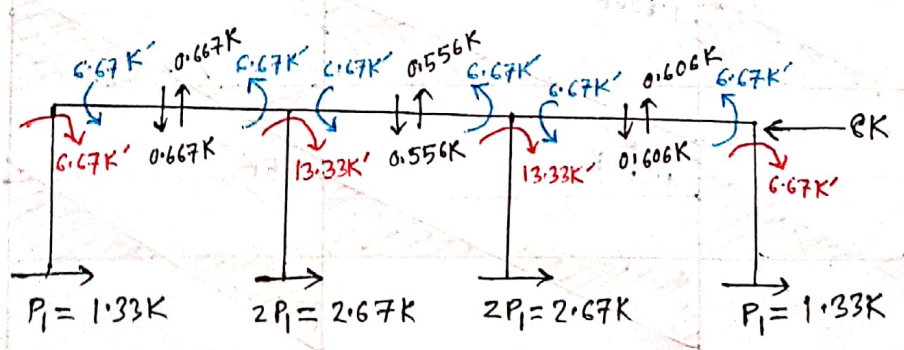 6.67K′ 0.667K 6.67K′ 6.67K′ 0.556K 6.67K′ 6.67K′ 0.606K 6.67K′
8K
6.67K′ 0.667K 13.33K′ 0.556K 13.33K′ 0.606K 6.67K′
P₁ = 1.33K 2P₁ = 2.67K 2P₁ = 2.67K P₁ = 1.33K